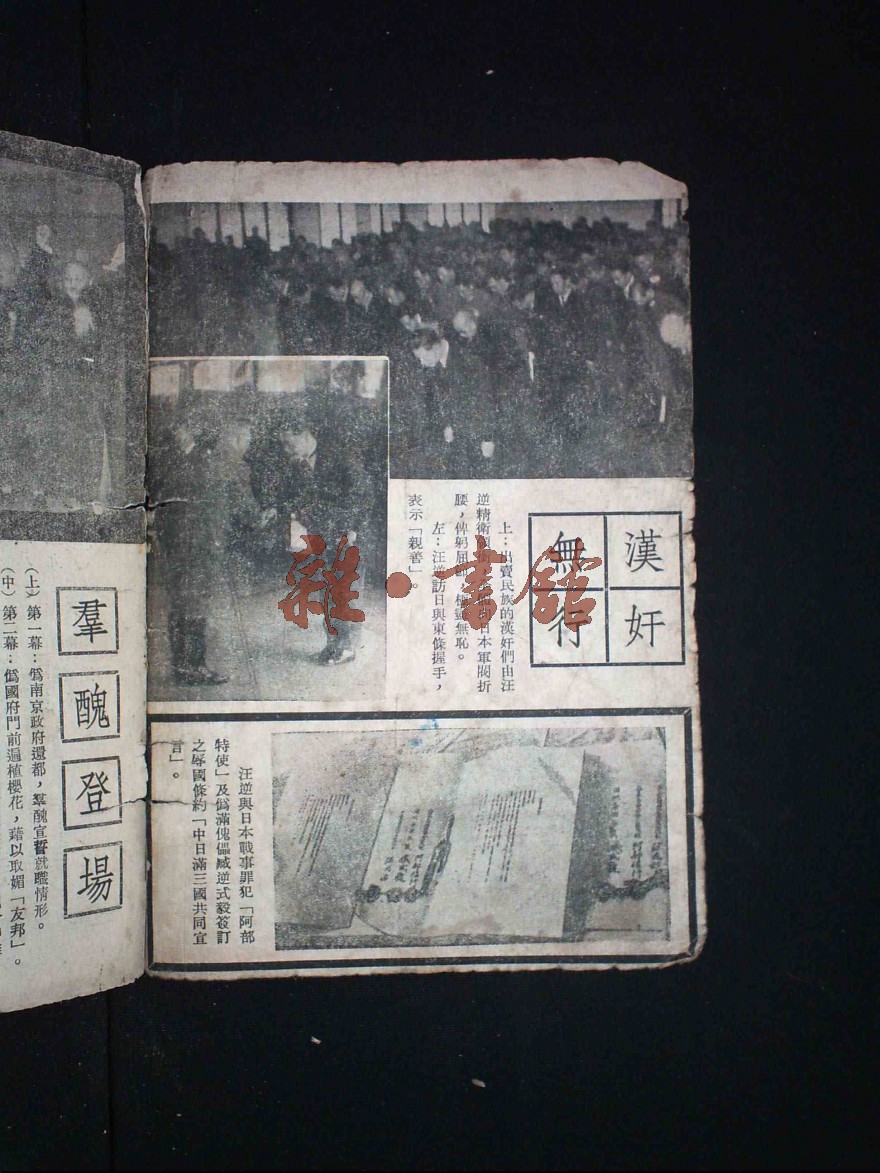 漢奸
無行
上：出賣民族的漢奸們由汪
逆精衛 日本軍閥折
腰，俾躬屈 無恥。
左：汪逆訪日與東條握手，
表示「親善」。
雜·書館
汪逆與日本戰事罪犯「阿部
特使」及僞滿傀儡臧逆式毅簽訂
之辱國條約「中日滿三國共同宣
言」。
羣醜登場
（上）第一幕：僞南京政府還都，羣醜宣誓就職情形。
（中）第二幕：僞國府門前遍植櫻花，藉以取媚「友邦」。